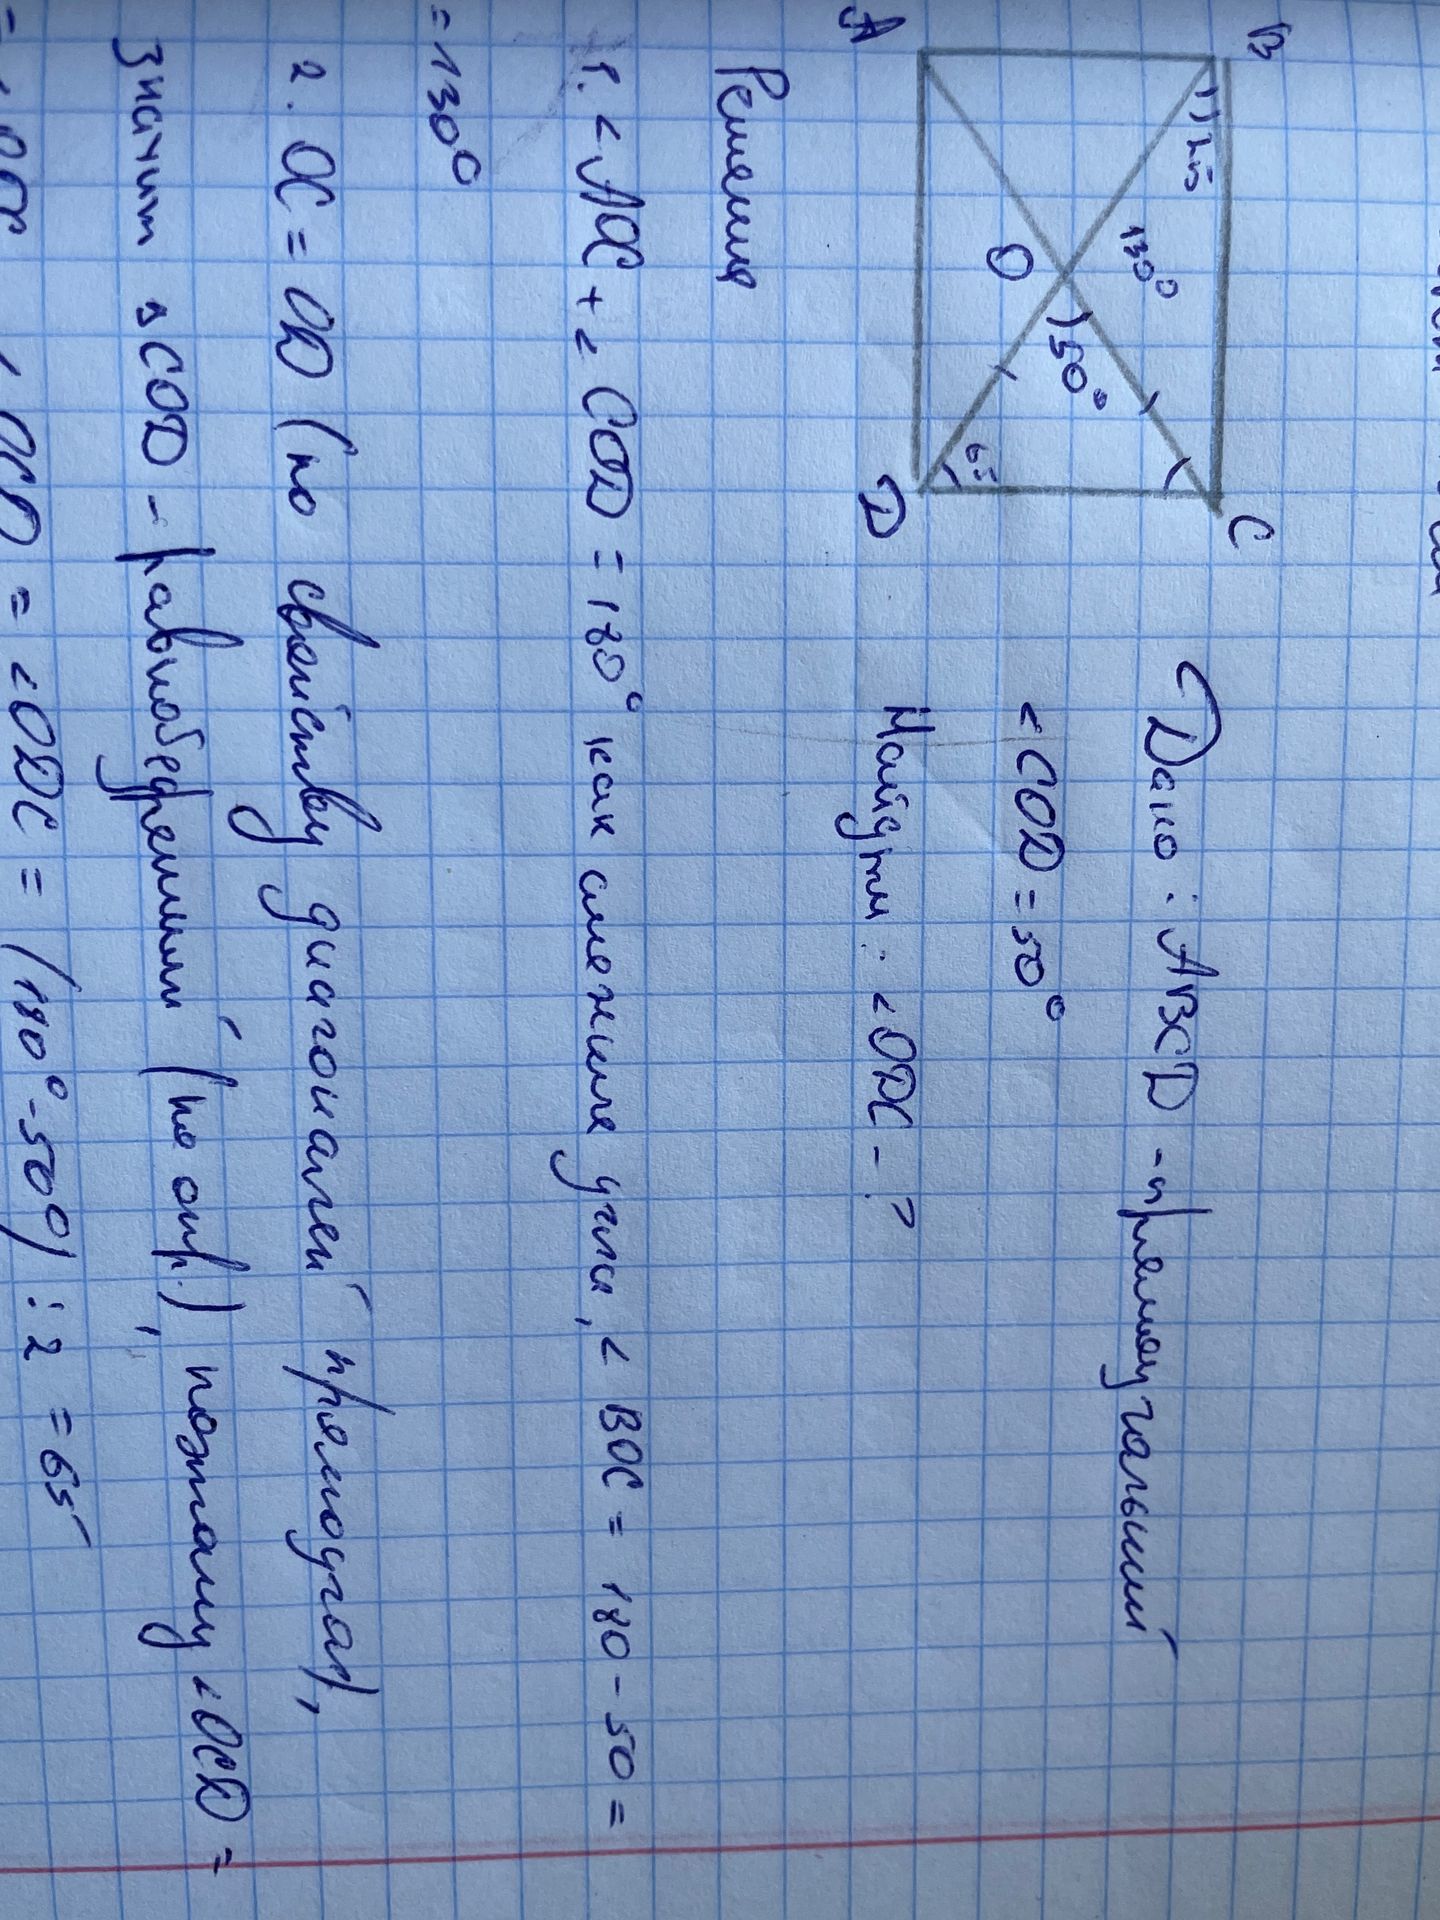 B C
25
130°
50°
O
65
A D
Дано: ABCD - прямоугольный
<COD = 50°
Найти: <ODC - ?
Решения
1. <AOC + <COD = 180° как смежные углы, <BOC = 180 - 50 =
= 130°
2. OC = OD (по свойству диагоналей прямоуг.),
значит △COD - равнобедренный (по опр.), поэтому <OCD =
= <OCD = <ODC = (180° - 50°) : 2 = 65